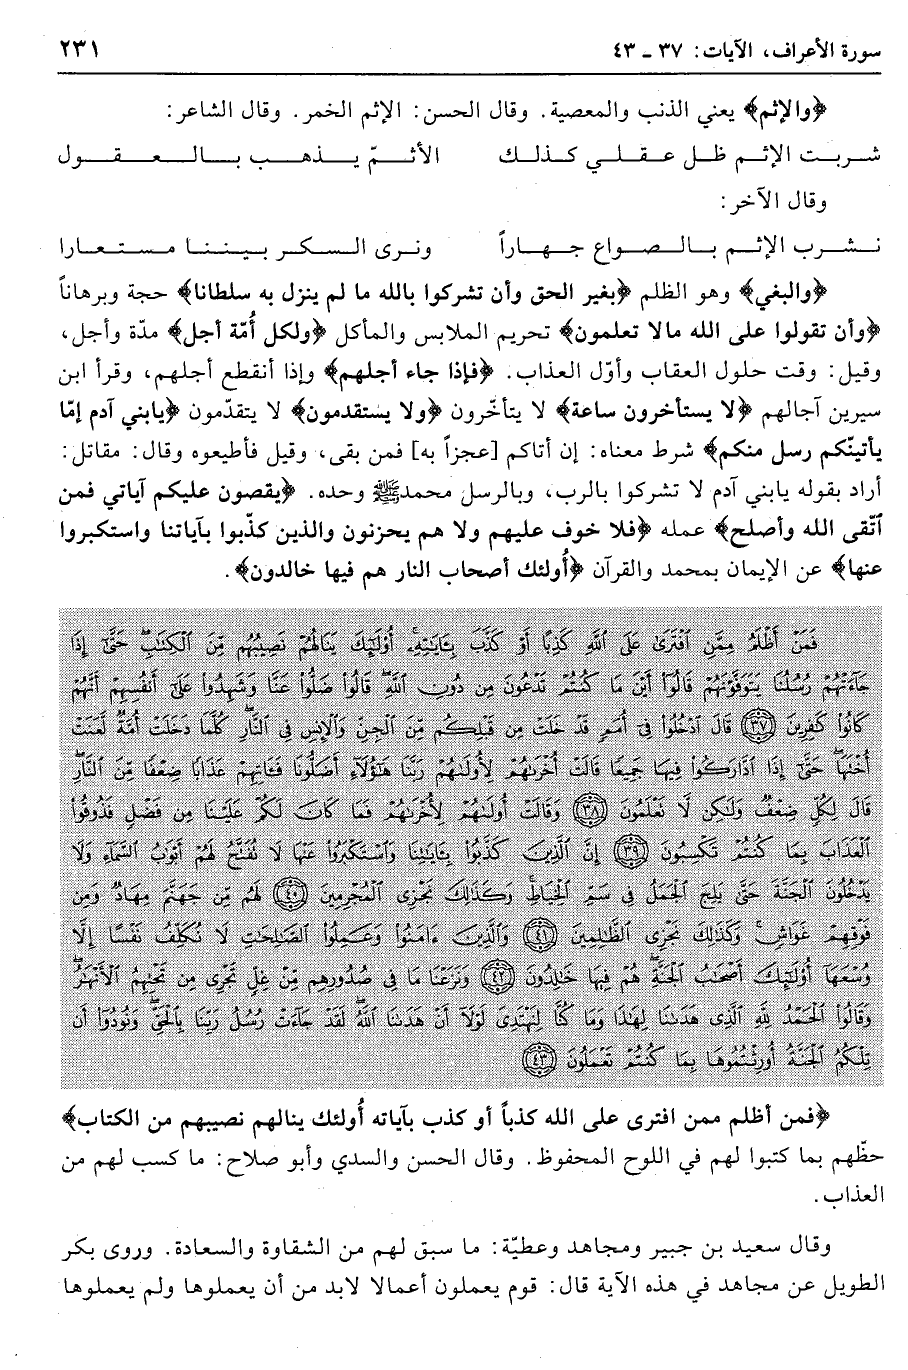 سورة الأعراف، الآيات: ٣٧ ـ ٤٣ ٢٣١
﴿والإثم﴾ يعني الذنب والمعصية. وقال الحسن: الإثم الخمر. وقال الشاعر:
شربت الإثم ظل عقلي كذلك الأثمّ يذهب بالعقول
وقال الآخر:
نشرب الإثم بالصواع جهاراً ونرى السكر بيننا مستعارا
﴿والبغي﴾ وهو الظلم ﴿بغير الحق وأن تشركوا بالله ما لم ينزل به سلطانا﴾ حجة وبرهاناً
﴿وأن تقولوا على الله مالا تعلمون﴾ تحريم الملابس والمأكل ﴿ولكل أُمّة أجل﴾ مدّة وأجل،
وقيل: وقت حلول العقاب وأوّل العذاب. ﴿فإذا جاء أجلهم﴾ وإذا أنقطع أجلهم، وقرأ ابن
سيرين آجالهم ﴿لا يستأخرون ساعة﴾ لا يتأخّرون ﴿ولا يستقدمون﴾ لا يتقدّمون ﴿يابني آدم إمّا
يأتينّكم رسل منكم﴾ شرط معناه: إن أتاكم [عجزاً به] فمن بقى، وقيل فأطيعوه وقال: مقاتل:
أراد بقوله يابني آدم لا تشركوا بالرب، وبالرسل محمدﷺ وحده. ﴿يقصون عليكم آياتي فمن
اتّقى الله وأصلح﴾ عمله ﴿فلا خوف عليهم ولا هم يحزنون والذين كذّبوا بآياتنا واستكبروا
عنها﴾ عن الإيمان بمحمد والقرآن ﴿أُولئك أصحاب النار هم فيها خالدون﴾.
فَمَنْ أَظْلَمُ مِمَّنِ ٱفْتَرَىٰ عَلَى ٱللَّهِ كَذِبًا أَوْ كَذَّبَ بِـَٔايَـٰتِهِۦٓ أُو۟لَـٰٓئِكَ يَنَالُهُمْ نَصِيبُهُم مِّنَ ٱلْكِتَـٰبِ حَتَّىٰٓ إِذَا
جَآءَتْهُمْ رُسُلُنَا يَتَوَفَّوْنَهُمْ قَالُوٓا۟ أَيْنَ مَا كُنتُمْ تَدْعُونَ مِن دُونِ ٱللَّهِ قَالُوا۟ ضَلُّوا۟ عَنَّا وَشَهِدُوا۟ عَلَىٰٓ أَنفُسِهِمْ أَنَّهُمْ
كَانُوا۟ كَـٰفِرِينَ ﴿٣٧﴾ قَالَ ٱدْخُلُوا۟ فِىٓ أُمَمٍ قَدْ خَلَتْ مِن قَبْلِكُم مِّنَ ٱلْجِنِّ وَٱلْإِنسِ فِى ٱلنَّارِ كُلَّمَا دَخَلَتْ أُمَّةٌ لَّعَنَتْ
أُخْتَهَا حَتَّىٰٓ إِذَا ٱدَّارَكُوا۟ فِيهَا جَمِيعًا قَالَتْ أُخْرَىٰهُمْ لِأُولَىٰهُمْ رَبَّنَا هَـٰٓؤُلَآءِ أَضَلُّونَا فَـَٔاتِهِمْ عَذَابًا ضِعْفًا مِّنَ ٱلنَّارِ
قَالَ لِكُلٍّ ضِعْفٌ وَلَـٰكِن لَّا تَعْلَمُونَ ﴿٣٨﴾ وَقَالَتْ أُولَىٰهُمْ لِأُخْرَىٰهُمْ فَمَا كَانَ لَكُمْ عَلَيْنَا مِن فَضْلٍ فَذُوقُوا۟
ٱلْعَذَابَ بِمَا كُنتُمْ تَكْسِبُونَ ﴿٣٩﴾ إِنَّ ٱلَّذِينَ كَذَّبُوا۟ بِـَٔايَـٰتِنَا وَٱسْتَكْبَرُوا۟ عَنْهَا لَا تُفَتَّحُ لَهُمْ أَبْوَٰبُ ٱلسَّمَآءِ وَلَا
يَدْخُلُونَ ٱلْجَنَّةَ حَتَّىٰ يَلِجَ ٱلْجَمَلُ فِى سَمِّ ٱلْخِيَاطِ وَكَذَٰلِكَ نَجْزِى ٱلْمُجْرِمِينَ ﴿٤٠﴾ لَهُم مِّن جَهَنَّمَ مِهَادٌ وَمِن
فَوْقِهِمْ غَوَاشٍ وَكَذَٰلِكَ نَجْزِى ٱلظَّـٰلِمِينَ ﴿٤١﴾ وَٱلَّذِينَ ءَامَنُوا۟ وَعَمِلُوا۟ ٱلصَّـٰلِحَـٰتِ لَا نُكَلِّفُ نَفْسًا إِلَّا
وُسْعَهَآ أُو۟لَـٰٓئِكَ أَصْحَـٰبُ ٱلْجَنَّةِ هُمْ فِيهَا خَـٰلِدُونَ ﴿٤٢﴾ وَنَزَعْنَا مَا فِى صُدُورِهِم مِّنْ غِلٍّ تَجْرِى مِن تَحْتِهِمُ ٱلْأَنْهَـٰرُ
وَقَالُوا۟ ٱلْحَمْدُ لِلَّهِ ٱلَّذِى هَدَىٰنَا لِهَـٰذَا وَمَا كُنَّا لِنَهْتَدِىَ لَوْلَآ أَنْ هَدَىٰنَا ٱللَّهُ لَقَدْ جَآءَتْ رُسُلُ رَبِّنَا بِٱلْحَقِّ وَنُودُوٓا۟ أَن
تِلْكُمُ ٱلْجَنَّةُ أُورِثْتُمُوهَا بِمَا كُنتُمْ تَعْمَلُونَ ﴿٤٣﴾
﴿فمن أظلم ممن افترى على الله كذباً أو كذب بآياته أُولئك ينالهم نصيبهم من الكتاب﴾
حظّهم بما كتبوا لهم في اللوح المحفوظ. وقال الحسن والسدي وأبو صلاح: ما كسب لهم من
العذاب.
وقال سعيد بن جبير ومجاهد وعطيّة: ما سبق لهم من الشقاوة والسعادة. وروى بكر
الطويل عن مجاهد في هذه الآية قال: قوم يعملون أعمالا لابد من أن يعملوها ولم يعملوها